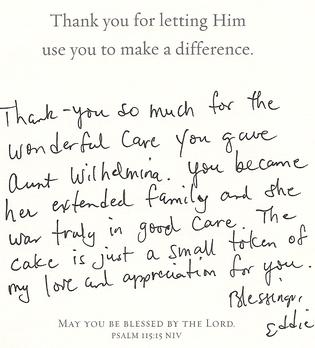 Thank you for letting Him
use you to make a difference.
Thank-you so much for the
wonderful care you gave
Aunt Wilhelmina. You became
her extended family and she
was truly in good care. The
cake is just a small token of
my love and appreciation for you.
Blessings,
Eddie
MAY YOU BE BLESSED BY THE LORD.
PSALM 115:15 NIV